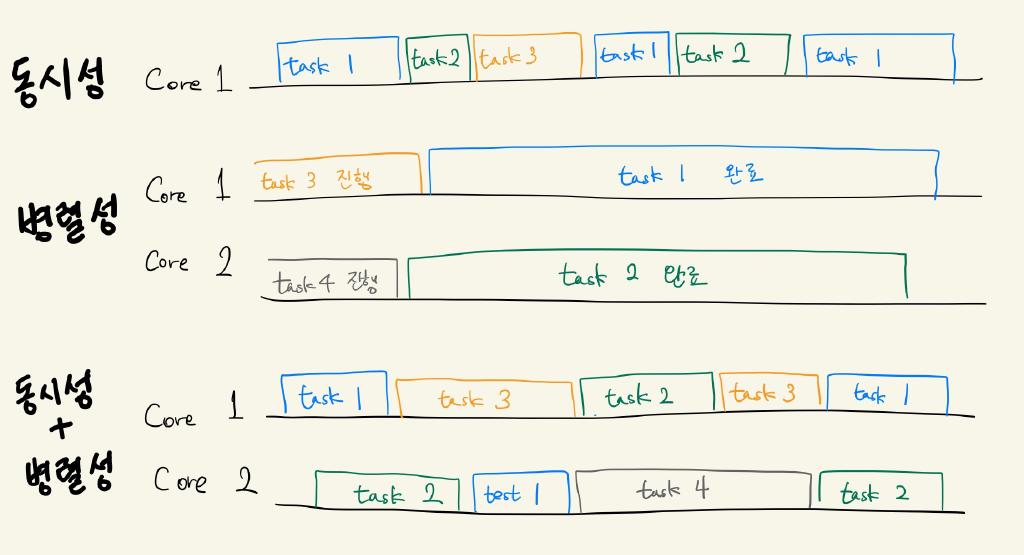 동시성 Core 1 task 1 task2 task 3 task 1 task 2 task 1
병렬성
Core 1 task 3 진행 task 1 완료
Core 2 task 4 진행 task 2 완료
동시성
+
병렬성
Core 1 task 1 task 3 task 2 task 3 task 1
Core 2 task 2 test 1 task 4 task 2